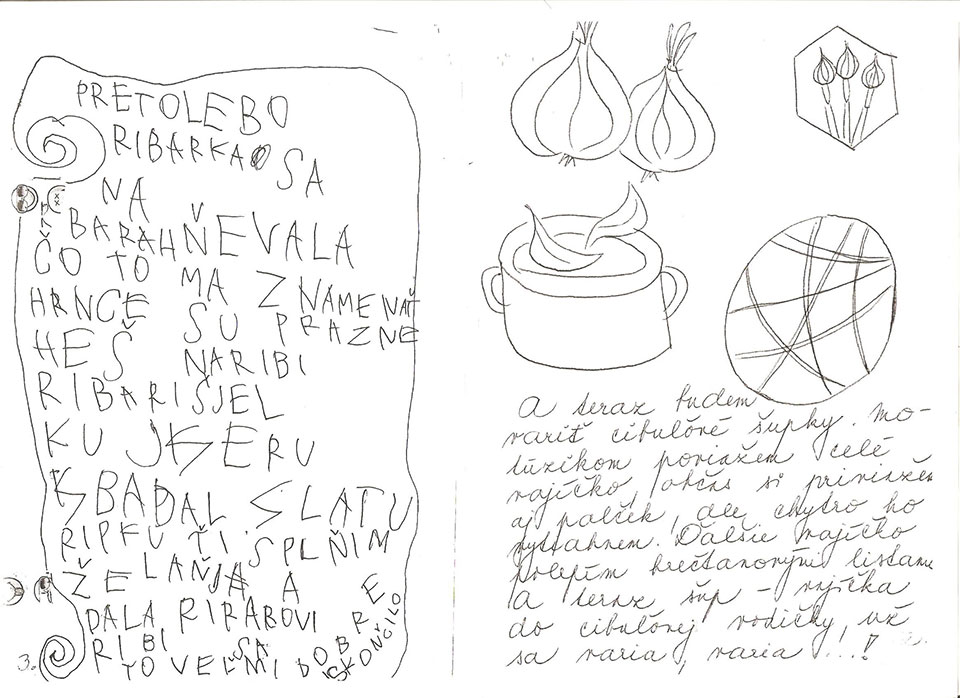 PRETOLEBO
RIBARKA SA
NA
BARAHŇEVALA
ČO TO MA ZNAMENAŤ
HRNCE SU PRAZNE
HEŠ NARIBI
RIBARIŠJEL
KU JAZERU
ZBADAL SLATU
RIPKU ŤI SPLŇIM
ŽELAŇJA A
DALA RIBAROVI
RIBI SA
TO VEĽMI DOBRE
SKONČILO
3.
A teraz budem
variť cibuľové šupky. Mo-
túzikom poviažem celé
vajíčko, občas si priviažem
aj palček, ale chytro ho
vytiahnem. Ďalšie vajíčko
polepím brečtanovými listami
A teraz šup - vajíčka
do cibuľovej vodičky, už
sa varia, varia ...!